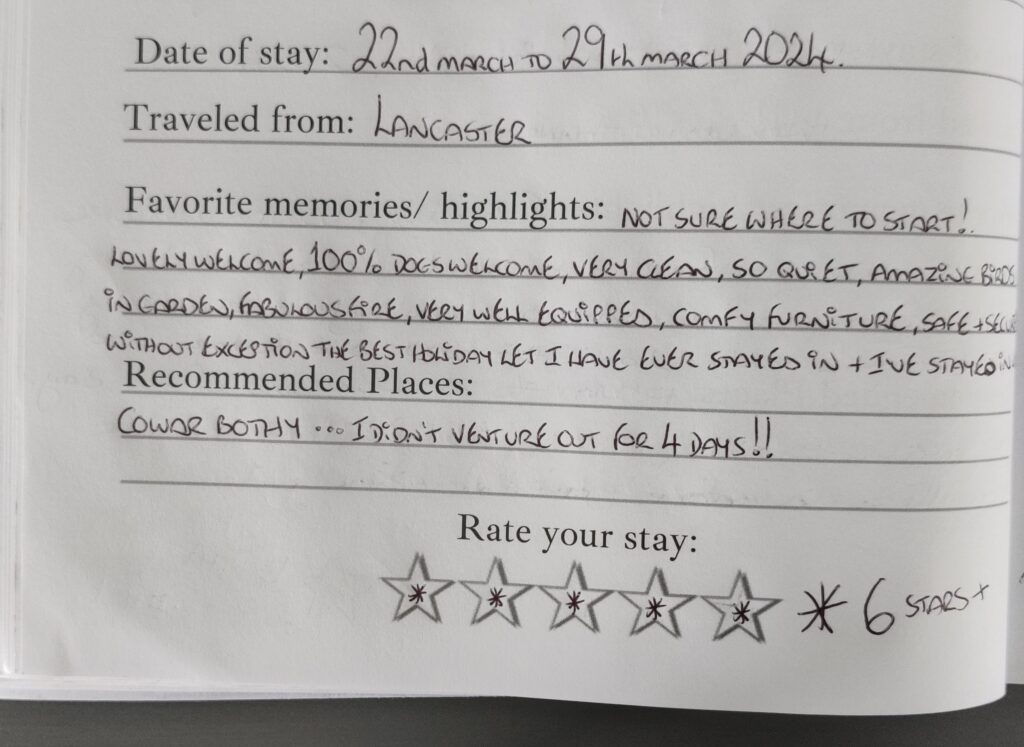 Date of stay: 22nd MARCH TO 29th MARCH 2024.
Traveled from: LANCASTER
Favorite memories/ highlights: NOT SURE WHERE TO START!
LOVELY WELCOME, 100% DOGS WELCOME, VERY CLEAN, SO QUIET, AMAZING BIRDS
IN GARDEN, FABULOUS FIRE, VERY WELL EQUIPPED, COMFY FURNITURE, SAFE +
WITHOUT EXCEPTION THE BEST HOLIDAY LET I HAVE EVER STAYED IN + I'VE STAYED IN
Recommended Places:
COWAR BOTHY ... I DIDN'T VENTURE OUT FOR 4 DAYS!!
Rate your stay:
6 STARS+